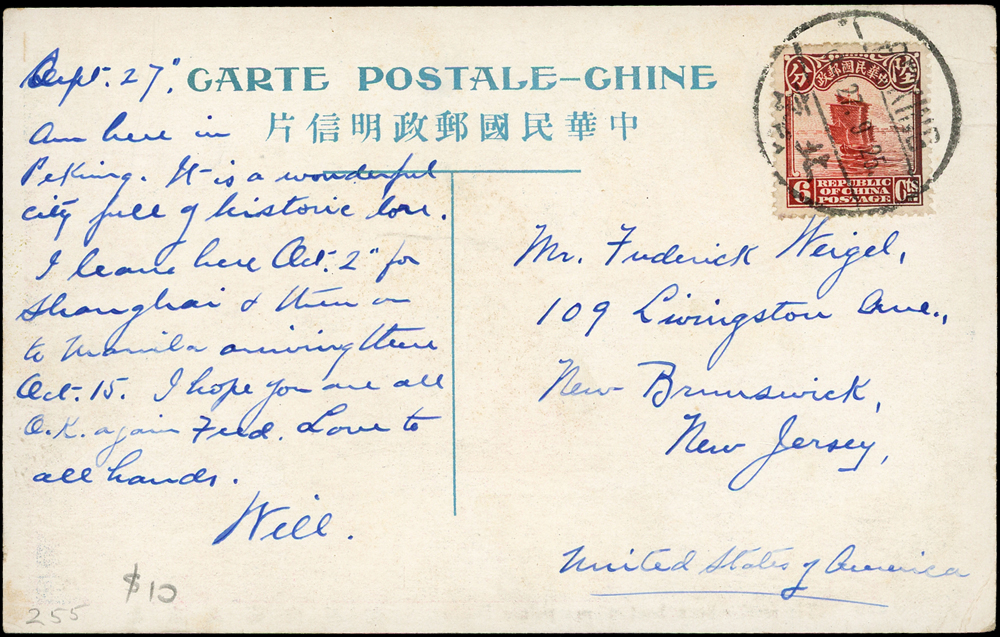 Sept. 27",
CARTE POSTALE–CHINE
中華民國郵政明信片
Am here in
Peking. It is a wonderful
city full of historic lore.
I leave here Oct. 2" for
Shanghai & then on
to Manila arriving there
Oct. 15. I hope you are all
O.K. again Fred. Love to
all hands.
Will.
中華民國郵政
6
REPUBLIC
OF CHINA
POSTAGE
CTS
PEKING
27. 9. 25
Mr. Frederick Weigel,
109 Livingston Ave.,
New Brunswick,
New Jersey,
United States of America
$10
255